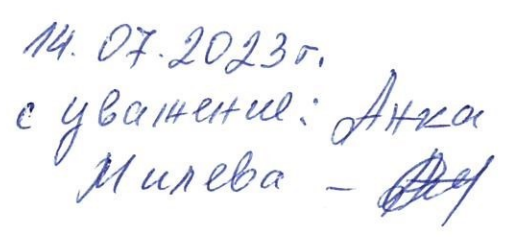 14.07.2023г.
с уважение: Анка
Милева –